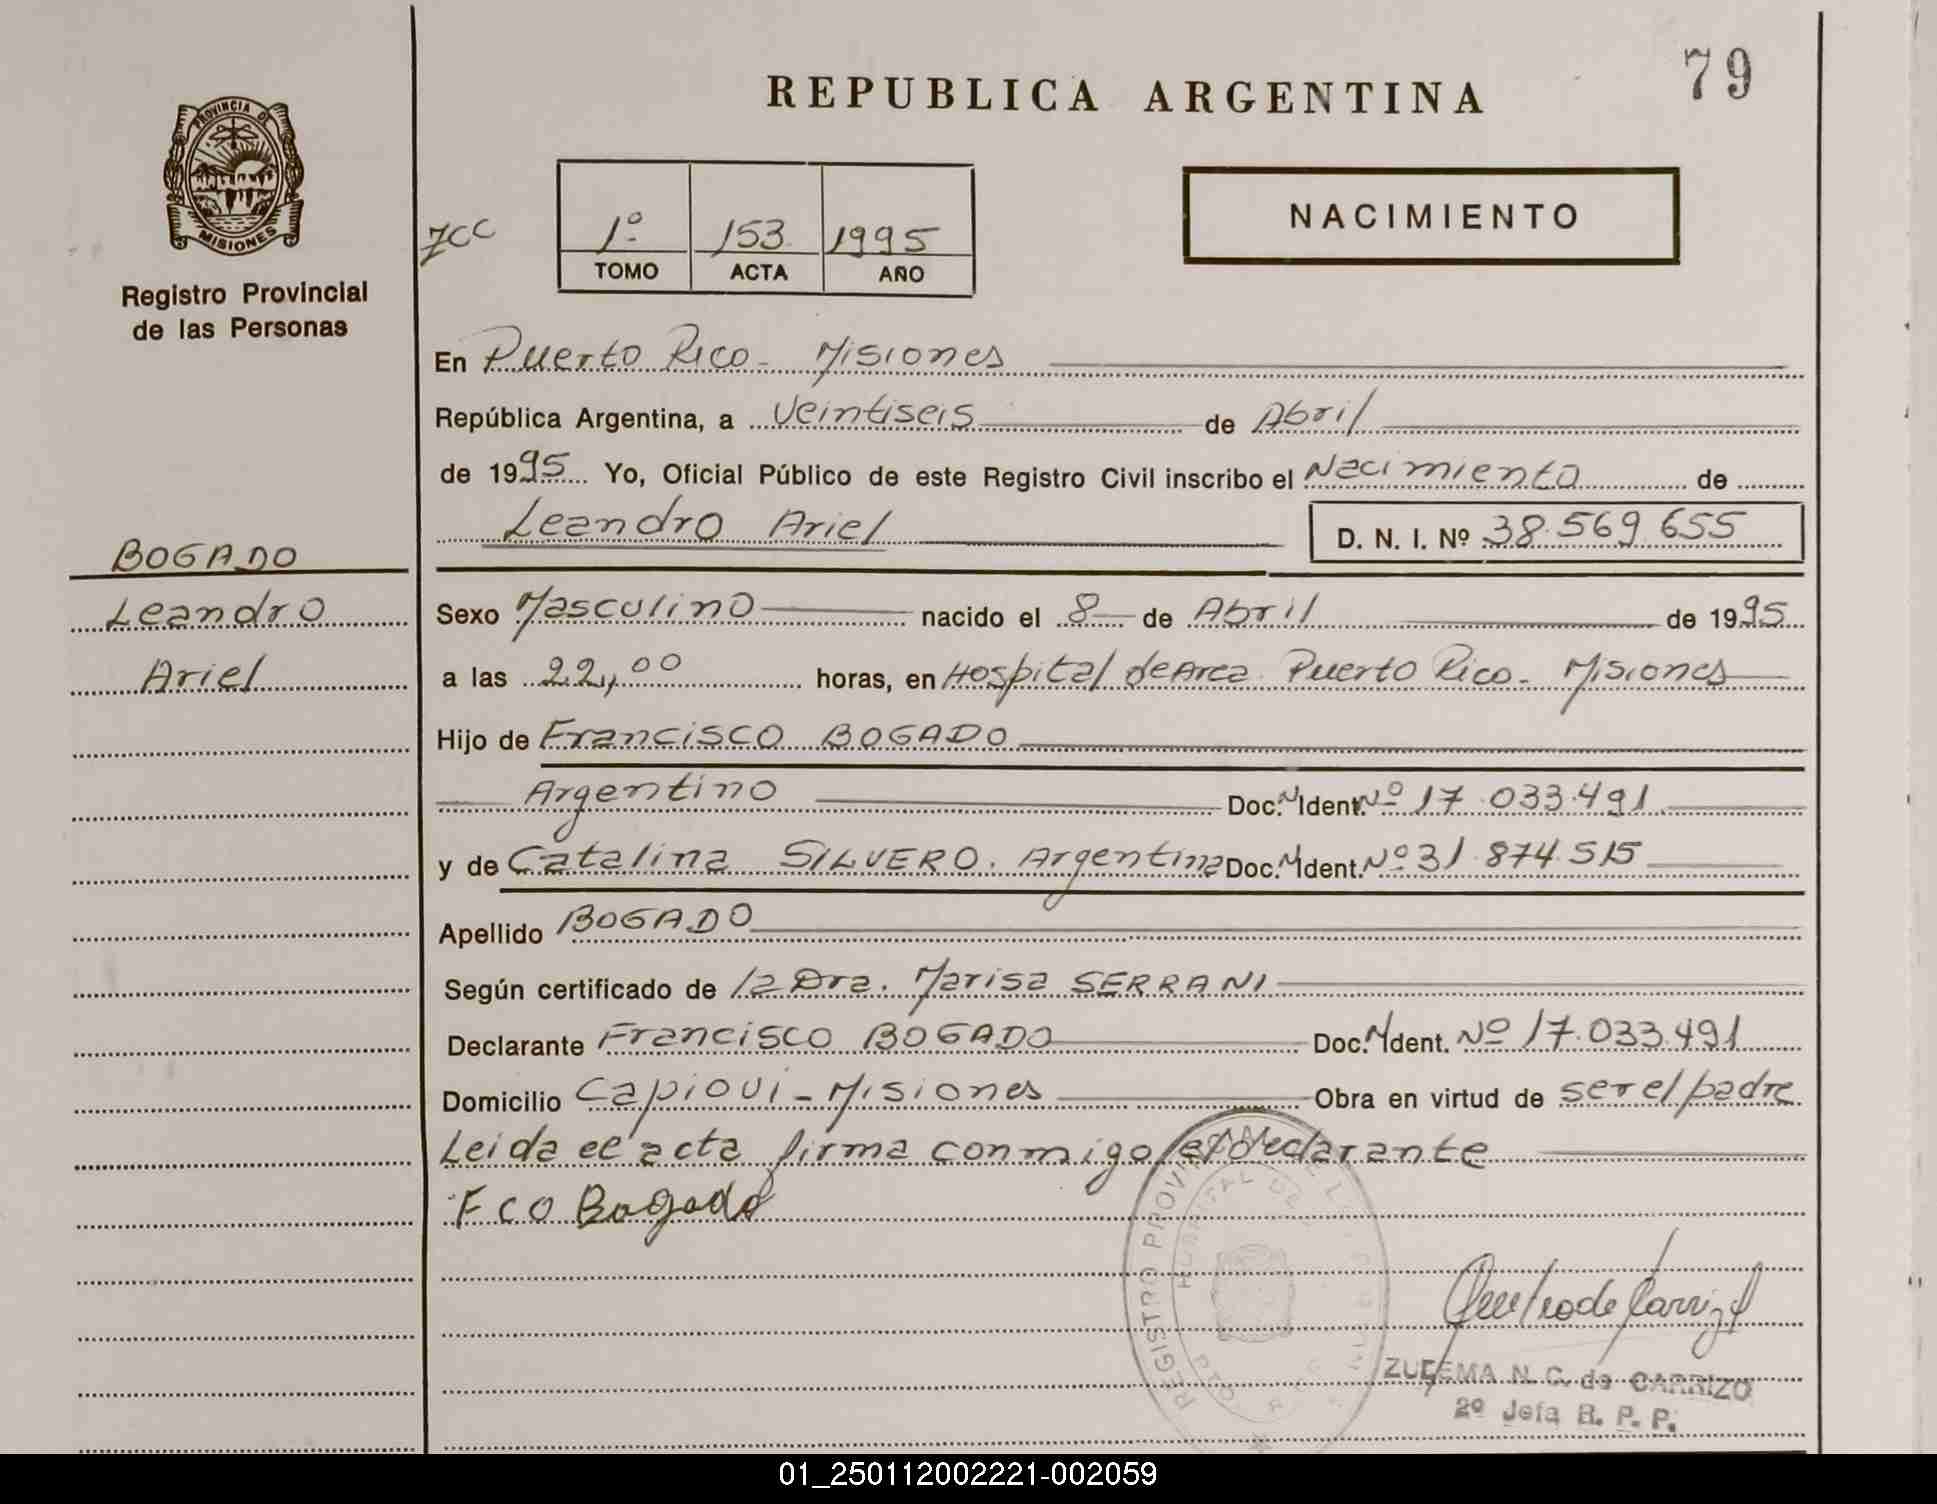 79
REPUBLICA ARGENTINA
PROVINCIA DE
MISIONES
Registro Provincial
de las Personas
NACIMIENTO
1º 153 1995
TOMO ACTA AÑO
En Puerto Rico - Misiones
República Argentina, a Veintiseis de Abril
de 1995 Yo, Oficial Público de este Registro Civil inscribo el Nacimiento de
Leandro Ariel D. N. I. Nº 38.569.655
BOGADO
Leandro
Ariel
Sexo Masculino nacido el 8 de Abril de 1995
a las 22,00 horas, en Hospital de Area Puerto Rico - Misiones
Hijo de Francisco BOGADO
Argentino Doc. N. Ident. Nº 17.033.491
y de Catalina SILVERO. Argentina Doc. N. Ident. Nº 31.874.515
Apellido BOGADO
Según certificado de la Dra. Marisa SERRANI
Declarante Francisco BOGADO Doc. N. Ident. Nº 17.033.491
Domicilio Capioui - Misiones Obra en virtud de ser el padre
Leida el acta firma conmigo el declarante
Fco Bogado
REGISTRO
HOSPITAL DE
ZULEMA N. C. de CARRIZO
2º Jefa R. P. P.
01_250112002221-002059